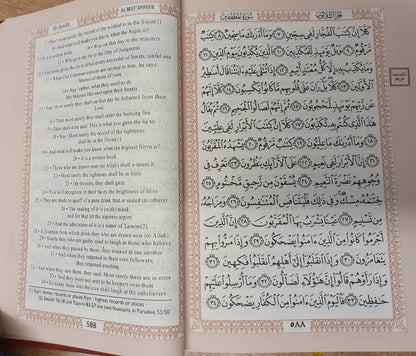 30- Juzu 30
AL MUT'AFIFEEN
7 - Nay! most surely the record of the wicked is in the Sijjin(1)
8 - And what will make you know, what the Sijjin is?
9 - It is a written book
10 - Woe on that day to the rejecters
11 - Who give the lie to the Day of Judgment
12 - And none gives the lie to it but every exceeder of limits, sinful one
13 - When Our Communications are recited to him, he says:
Stories of those of yore.
14 - Nay! rather, what they used to do
has become like rust upon their hearts
15 - Nay! most surely they shall on that day be debarred from their
Lord
16 - Then most surely they shall enter the burning fire
17 - Then shall it be said: This is what you gave the lie to
18 - Nay! Most surely the record of the righteous
shall be in the Iliyin(1)
19 - And what will make you know, what the highest Iliyin is?
20 - It is a written book
21 - Those who are drawn near (to Allah) shall witness it.
22 - Most surely the righteous shall be in bliss
23 - On thrones, they shall gaze
24 - You will recognize in their faces the brightness of bliss
25 - They are made to quaff of a pure drink that is sealed (to others)
26 - The sealing of it is (with) musk
and for that let the aspirers aspire
27 - And the admixture of it is a water of Tasnim(2)
28 - A fountain from which drink they who are drawn near (to Allah)
29 - Surely they who are guilty used to laugh at those who believe
30 - And when they passed by them, they winked at one another
31 - And when they returned to their own followers
they returned exulting.
32 - And when they saw them, they said: Most surely these are in error
33 - And they were not sent to be keepers over them
34 - So today those who believe shall laugh at the unbelievers
588
سُورَةُ المُطَفِّفِينَ
الجُزْءُ الثَّلاثُونَ
كَلَّآ إِنَّ كِتَٰبَ ٱلْفُجَّارِ لَفِى سِجِّينٍ ٧ وَمَآ أَدْرَىٰكَ مَا سِجِّينٌ ٨ كِتَٰبٌ
مَّرْقُومٌ ٩ وَيْلٌ يَوْمَئِذٍ لِّلْمُكَذِّبِينَ ١٠ ٱلَّذِينَ يُكَذِّبُونَ بِيَوْمِ ٱلدِّينِ ١١
وَمَا يُكَذِّبُ بِهِۦٓ إِلَّا كُلُّ مُعْتَدٍ أَثِيمٍ ١٢ إِذَا تُتْلَىٰ عَلَيْهِ ءَايَٰتُنَا قَالَ أَسَٰطِيرُ
ٱلْأَوَّلِينَ ١٣ كَلَّا بَلْ رَانَ عَلَىٰ قُلُوبِهِم مَّا كَانُوا۟ يَكْسِبُونَ ١٤ كَلَّآ إِنَّهُمْ
عَن رَّبِّهِمْ يَوْمَئِذٍ لَّمَحْجُوبُونَ ١٥ ثُمَّ إِنَّهُمْ لَصَالُوا۟ ٱلْجَحِيمِ ١٦ ثُمَّ يُقَالُ
هَٰذَا ٱلَّذِى كُنتُم بِهِۦ تُكَذِّبُونَ ١٧ كَلَّآ إِنَّ كِتَٰبَ ٱلْأَبْرَارِ لَفِى عِلِّيِّينَ
١٨ وَمَآ أَدْرَىٰكَ مَا عِلِّيُّونَ ١٩ كِتَٰبٌ مَّرْقُومٌ ٢٠ يَشْهَدُهُ ٱلْمُقَرَّبُونَ
٢١ إِنَّ ٱلْأَبْرَارَ لَفِى نَعِيمٍ ٢٢ عَلَى ٱلْأَرَآئِكِ يَنظُرُونَ ٢٣ تَعْرِفُ فِى
وُجُوهِهِمْ نَضْرَةَ ٱلنَّعِيمِ ٢٤ يُسْقَوْنَ مِن رَّحِيقٍ مَّخْتُومٍ ٢٥
خِتَٰمُهُۥ مِسْكٌ وَفِى ذَٰلِكَ فَلْيَتَنَافَسِ ٱلْمُتَنَٰفِسُونَ ٢٦ وَمِزَاجُهُۥ
مِن تَسْنِيمٍ ٢٧ عَيْنًا يَشْرَبُ بِهَا ٱلْمُقَرَّبُونَ ٢٨ إِنَّ ٱلَّذِينَ
أَجْرَمُوا۟ كَانُوا۟ مِنَ ٱلَّذِينَ ءَامَنُوا۟ يَضْحَكُونَ ٢٩ وَإِذَا مَرُّوا۟ بِهِمْ
يَتَغَامَزُونَ ٣٠ وَإِذَا ٱنقَلَبُوٓا۟ إِلَىٰٓ أَهْلِهِمُ ٱنقَلَبُوا۟ فَكِهِينَ ٣١
وَإِذَا رَأَوْهُمْ قَالُوٓا۟ إِنَّ هَٰٓؤُلَآءِ لَضَآلُّونَ ٣٢ وَمَآ أُرْسِلُوا۟ عَلَيْهِمْ
حَٰفِظِينَ ٣٣ فَٱلْيَوْمَ ٱلَّذِينَ ءَامَنُوا۟ مِنَ ٱلْكُفَّارِ يَضْحَكُونَ ٣٤
٥٨٨